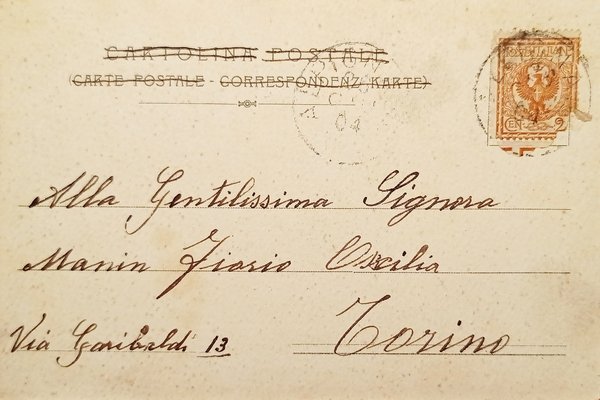 CARTOLINA POSTALE
(CARTE POSTALE - CORRESPONDENZ-KARTE)
04
POSTE ITALIANE
CEN. 2
04
Alla Gentilissima Signora
Manin Fiorio Oxilia
Via Garibaldi 13
Torino